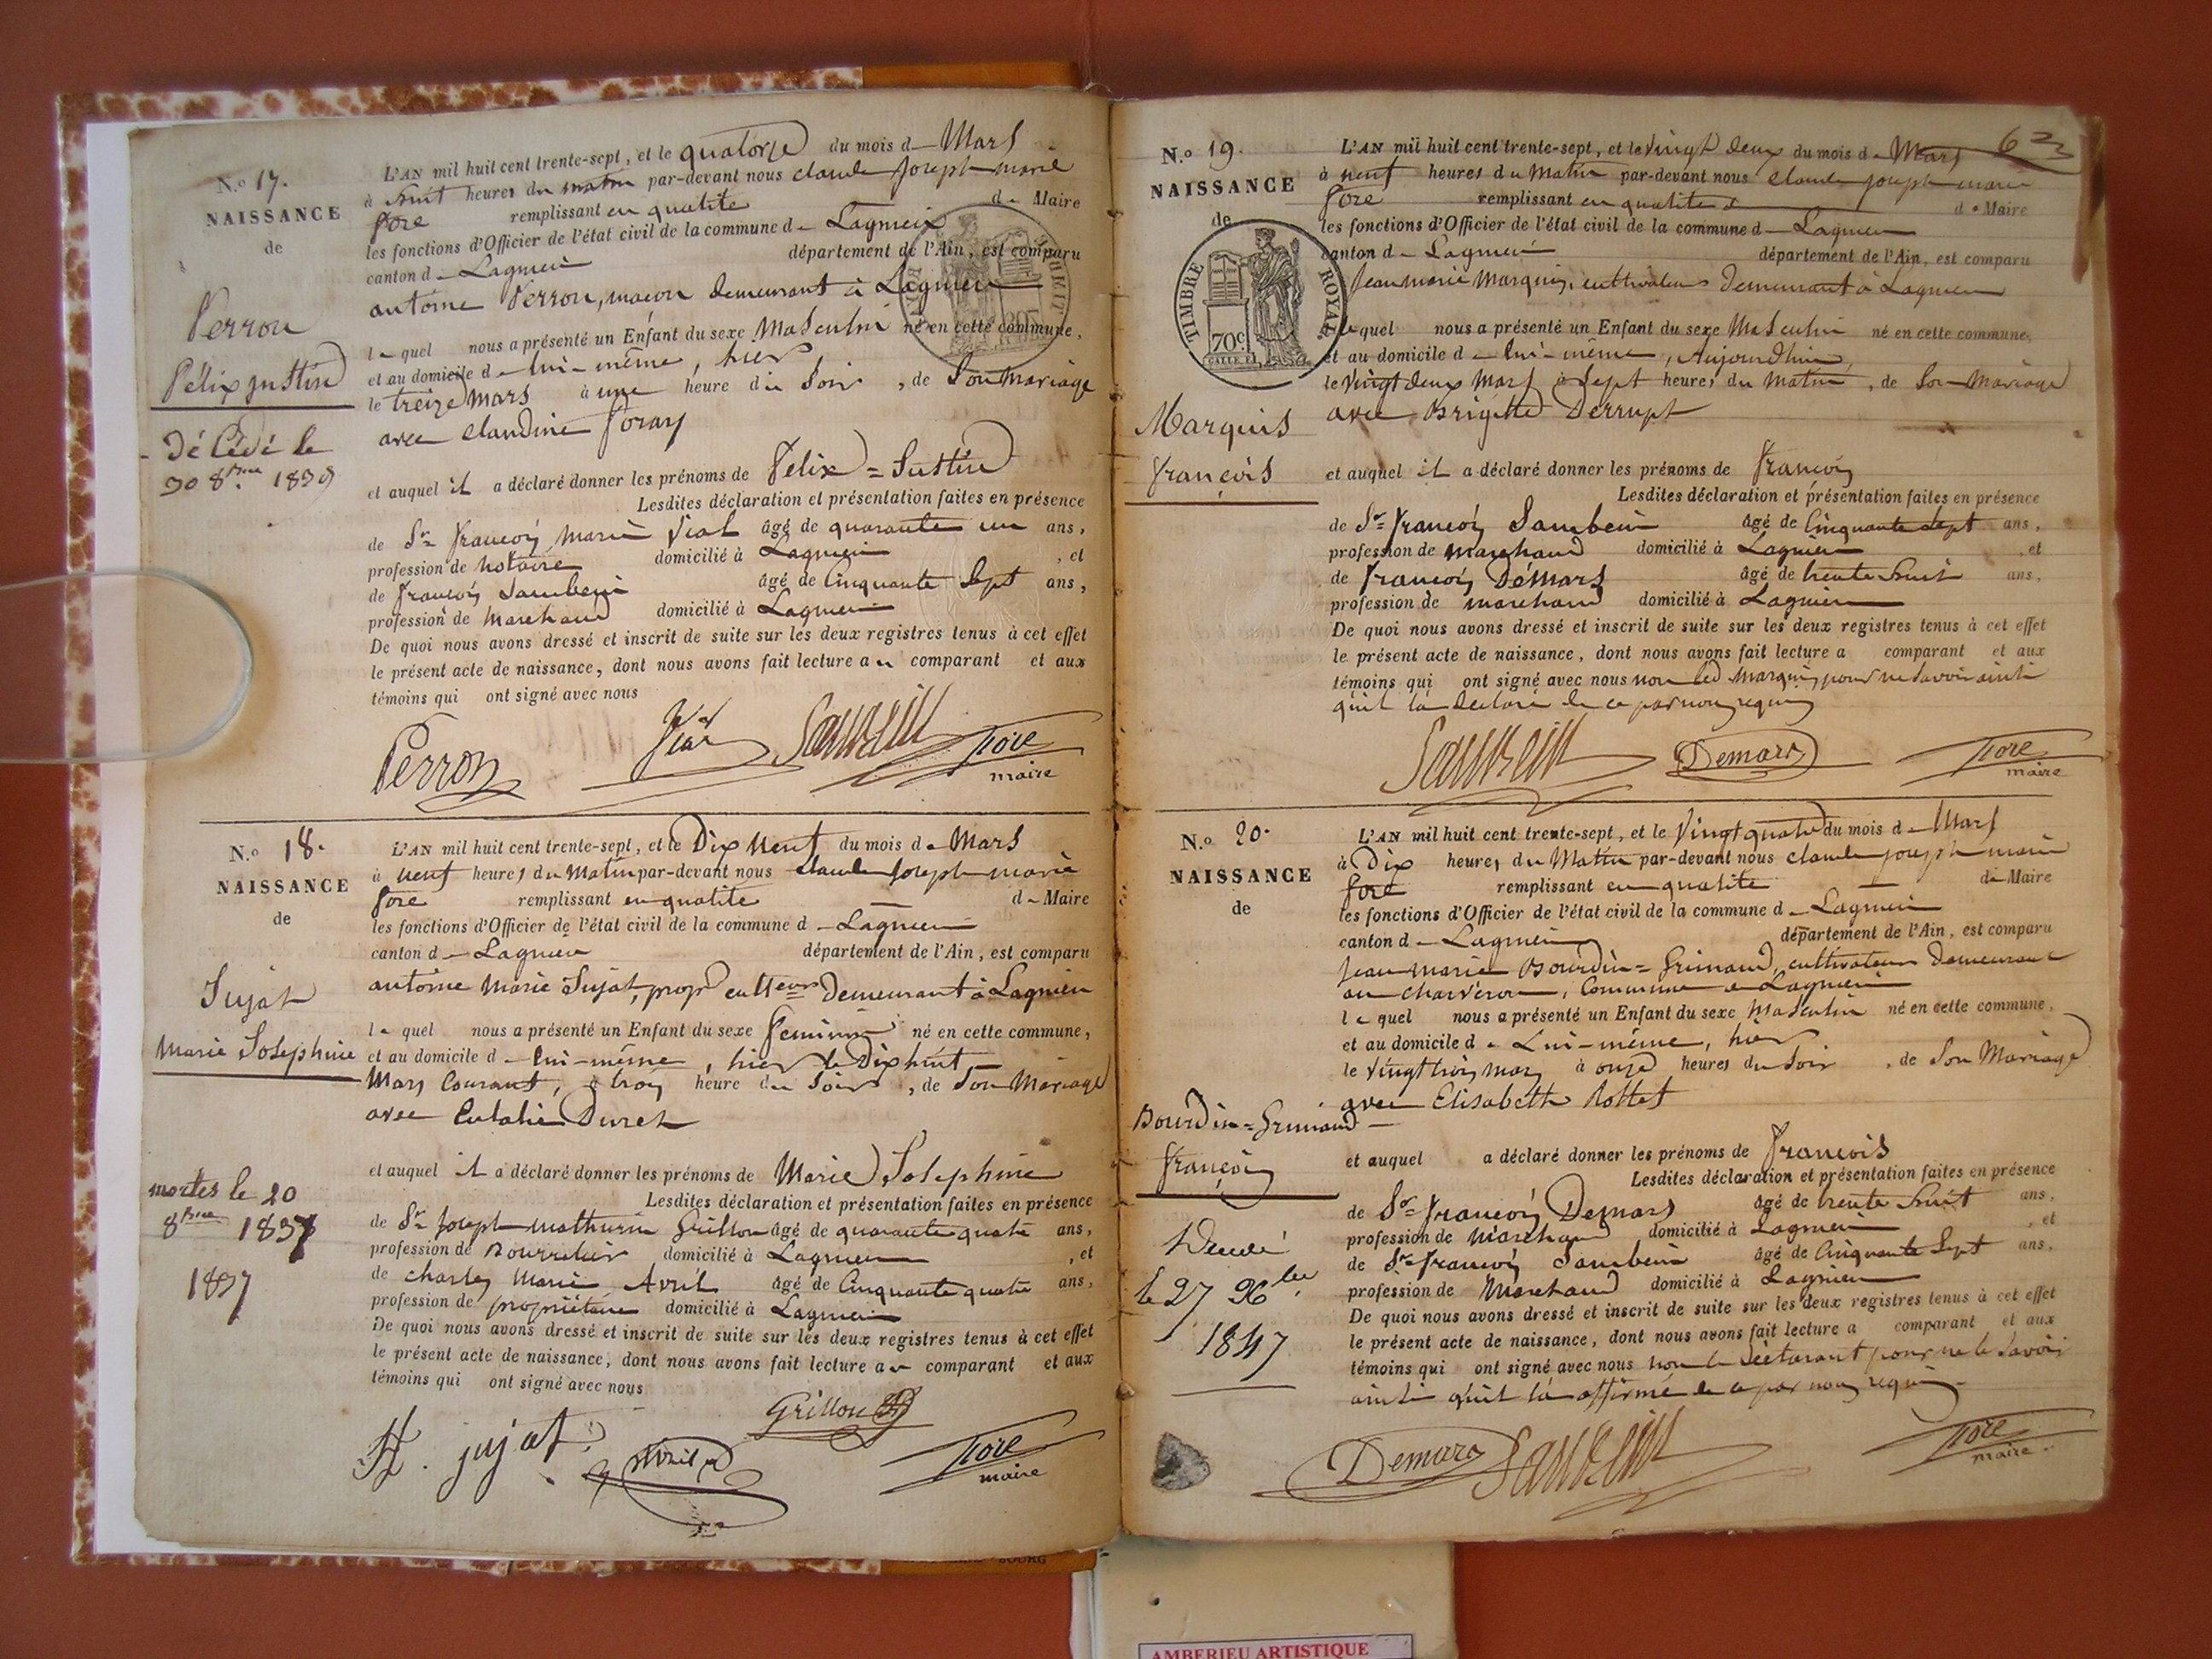 N.º 17.
NAISSANCE
de
Perron
Félix Justin
Décédé le
30 8.bre 1839
L'AN mil huit cent trente-sept, et le quatorze du mois d - Mars
à huit heures du matin par-devant nous Claude Joseph marie
foré remplissant en qualité d - Maire
les fonctions d'Officier de l'état civil de la commune d - Lagnieu
canton d - Lagnieu département de l'Ain, est comparu
antoine Perron, maçon demeurant à Lagnieu
le quel nous a présenté un Enfant du sexe Masculin né en cette commune,
et au domicile d - lui-même, hier
le treize mars à une heure du Soir, de Son mariage
avec Claudine foray
et auquel il a déclaré donner les prénoms de Félix = Justin
Lesdites déclaration et présentation faites en présence
de Sr françois Marie Vial âgé de quarante un ans,
profession de notaire domicilié à Lagnieu, et
de françois Sambein âgé de Cinquante Sept ans,
profession de Marchand domicilié à Lagnieu
De quoi nous avons dressé et inscrit de suite sur les deux registres tenus à cet effet
le présent acte de naissance, dont nous avons fait lecture au comparant et aux
témoins qui ont signé avec nous
Perron Vial Sambein foré
maire
N.º 18.
NAISSANCE
de
Jujat
Marie Josephine
mortes le 20
8bre 1837
1837
L'AN mil huit cent trente-sept, et le Dix neuf du mois de Mars
à neuf heures du Matin par-devant nous Claude Joseph marie
foré remplissant en qualité d - Maire
les fonctions d'Officier de l'état civil de la commune d - Lagnieu
canton d - Lagnieu département de l'Ain, est comparu
antoine Marie Jujat, propre cultteur Demeurant à Lagnieu
le quel nous a présenté un Enfant du sexe féminin né en cette commune,
et au domicile d - lui-même, hier le Dix huit
Mars Courant, à trois heure du Soir, de Son Mariage
avec Eulalie Duret
et auquel il a déclaré donner les prénoms de Marie Josephine
Lesdites déclaration et présentation faites en présence
de Sr Joseph mathurin Grillon âgé de quarante quatre ans,
profession de Bourrelier domicilié à Lagnieu, et
de Charles Marie Avril âgé de Cinquante quatre ans,
profession de propriétaire domicilié à Lagnieu
De quoi nous avons dressé et inscrit de suite sur les deux registres tenus à cet effet
le présent acte de naissance, dont nous avons fait lecture au comparant et aux
témoins qui ont signé avec nous
jujat Avril Grillon foré
maire
N.º 19.
NAISSANCE
de
TIMBRE ROYAL
70c.
Marquis
françois
L'AN mil huit cent trente-sept, et le Vingt deux du mois d - Mars
à neuf heures du Matin par-devant nous Claude joseph marie
foré remplissant en qualité d - Maire
les fonctions d'Officier de l'état civil de la commune d - Lagnieu
canton d - Lagnieu département de l'Ain, est comparu
Jean marie Marquis, cultivateur Demeurant à Lagnieu
le quel nous a présenté un Enfant du sexe Masculin né en cette commune,
et au domicile d - lui-même, Aujourdhui
le Vingt deux Mars à Sept heures du Matin, de Son Mariage
avec Brigitte Derrupt
et auquel il a déclaré donner les prénoms de françois
Lesdites déclaration et présentation faites en présence
de Sr françois Sambein âgé de Cinquante Sept ans,
profession de marchand domicilié à Lagnieu, et
de françois Démars âgé de trente huit ans,
profession de marchand domicilié à Lagnieu
De quoi nous avons dressé et inscrit de suite sur les deux registres tenus à cet effet
le présent acte de naissance, dont nous avons fait lecture a comparant et aux
témoins qui ont signé avec nous non led Marquis pour ne savoir ainsi
quil la déclaré de ce par nous requis
Sambein Demars foré
maire
N.º 20.
NAISSANCE
de
Bourdin = Grimaud
françois
Décédé
le 27
1847
L'AN mil huit cent trente-sept, et le Vingt quatre du mois d - Mars
à Dix heures du Matin par-devant nous Claude joseph marie
foré remplissant en qualité de Maire
les fonctions d'Officier de l'état civil de la commune d - Lagnieu
canton d - Lagnieu département de l'Ain, est comparu
Jean Marie Bourdin = Grimaud, cultivateur Demeurant
au Charveron, Commune de Lagnieu
le quel nous a présenté un Enfant du sexe Masculin né en cette commune,
et au domicile d - Lui-même, hier
le Vingt trois mars à onze heures du Soir, de Son Mariage
avec Elisabeth Rottet
et auquel a déclaré donner les prénoms de françois
Lesdites déclaration et présentation faites en présence
de Sr françois Demars âgé de trente huit ans,
profession de Marchand domicilié à Lagnieu, et
de Sr françois Sambein âgé de Cinquante Sept ans,
profession de Marchand domicilié à Lagnieu
De quoi nous avons dressé et inscrit de suite sur les deux registres tenus à cet effet
le présent acte de naissance, dont nous avons fait lecture a comparant et aux
témoins qui ont signé avec nous non le déclarant pour ne le Savoir
ainsi quil la affirmé de ce par nous requis
Demars Sambein foré
maire
AMBERIEU ARTISTIQUE